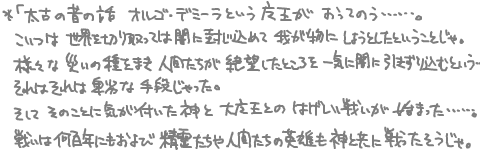 *「太古の昔の話 オルゴ・デミーラという魔王が おってのう……。
こいつは 世界を切り取っては闇に封じ込めて 我が物に しようとしたということじゃ。
様々な 災いの種をまき 人間たちが 絶望したところを 一気に闇に引きずり込むという
それはそれは卑劣な 手段じゃった。
そして そのことに気が付いた神と 大魔王との はげしい戦いが 始まった……。
戦いは何百年にもおよび 精霊たちや人間たちの英雄も 神と共に 戦ったそうじゃ。